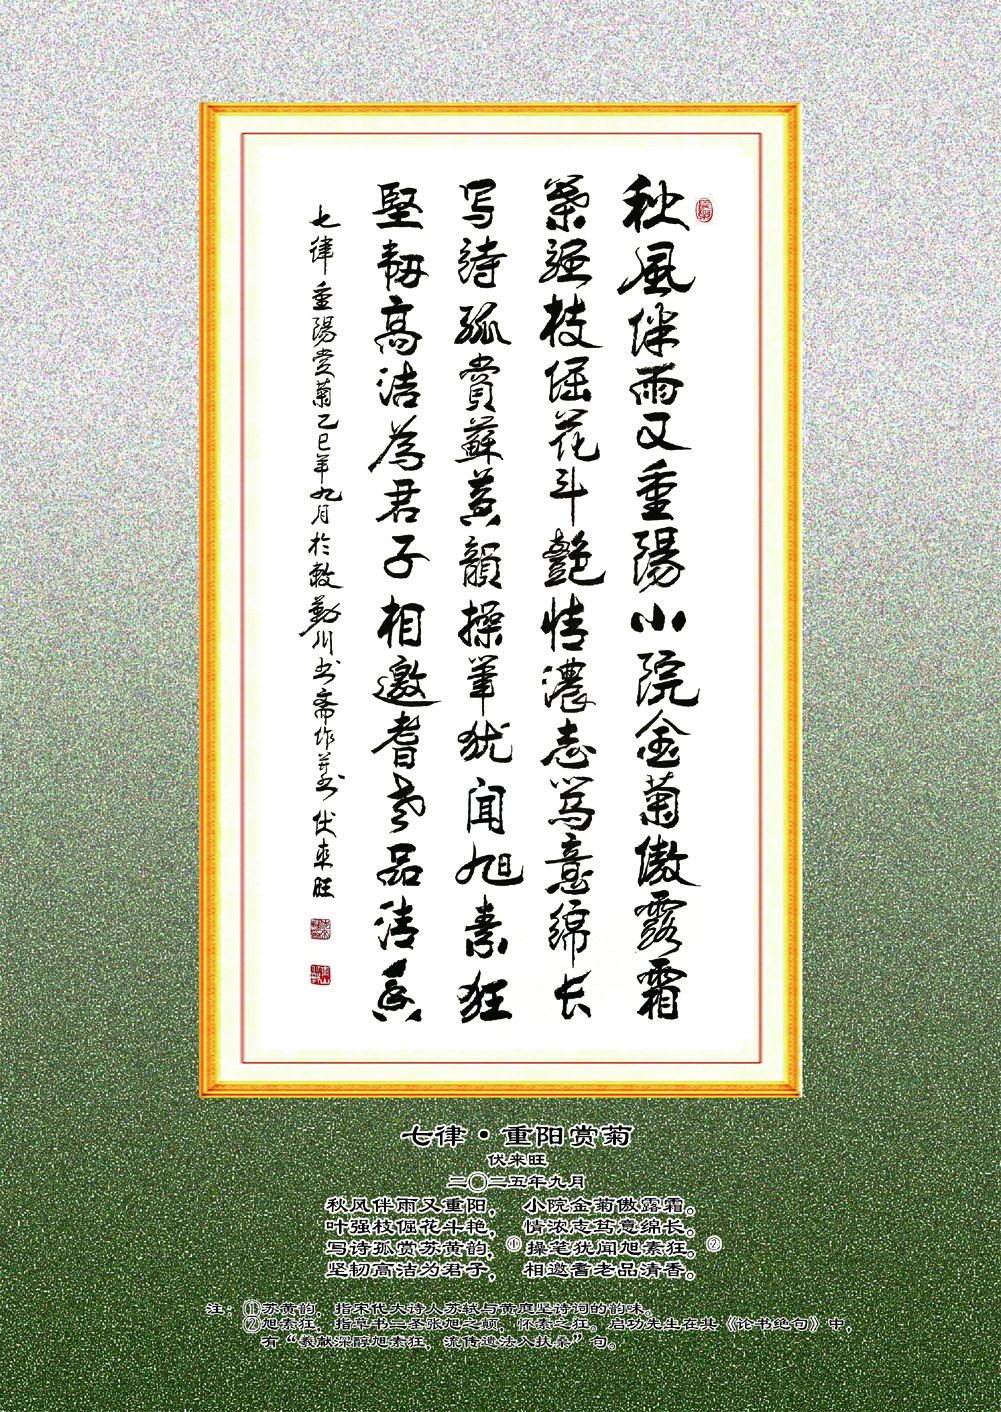 秋風伴雨又重陽小院金菊傲露霜
葉强枝倔花斗艷情濃志笃意綿长
写詩孤賞蘇黄韻操筆犹闻旭素狂
堅韧高洁為君子相邀耆老品清香
七律 重陽赏菊乙巳年九月於敕勒川书斋作并书 伏来旺
七律·重阳赏菊
伏来旺
二〇二五年九月
秋风伴雨又重阳， 小院金菊傲露霜。
叶强枝倔花斗艳， 情浓志笃意绵长。
写诗孤赏苏黄韵，① 操笔犹闻旭素狂。②
坚韧高洁为君子， 相邀耆老品清香。
注：①苏黄韵，指宋代大诗人苏轼与黄庭坚诗词的韵味。
②旭素狂，指草书二圣张旭之颠，怀素之狂。启功先生在其《论书绝句》中，
有“羲献深醇旭素狂，流传遗法入扶桑”句。